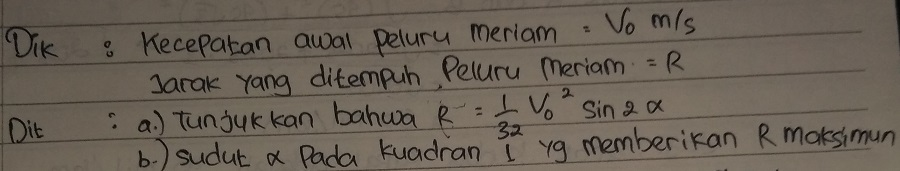 Dik : Kecepatan awal peluru meriam = V₀ m/s
Jarak yang ditempuh Peluru Meriam = R
Dit : a.) Tunjukkan bahwa R = 1/32 V₀² Sin 2 α
b.) Sudut α Pada kuadran I yg memberikan R maksimun